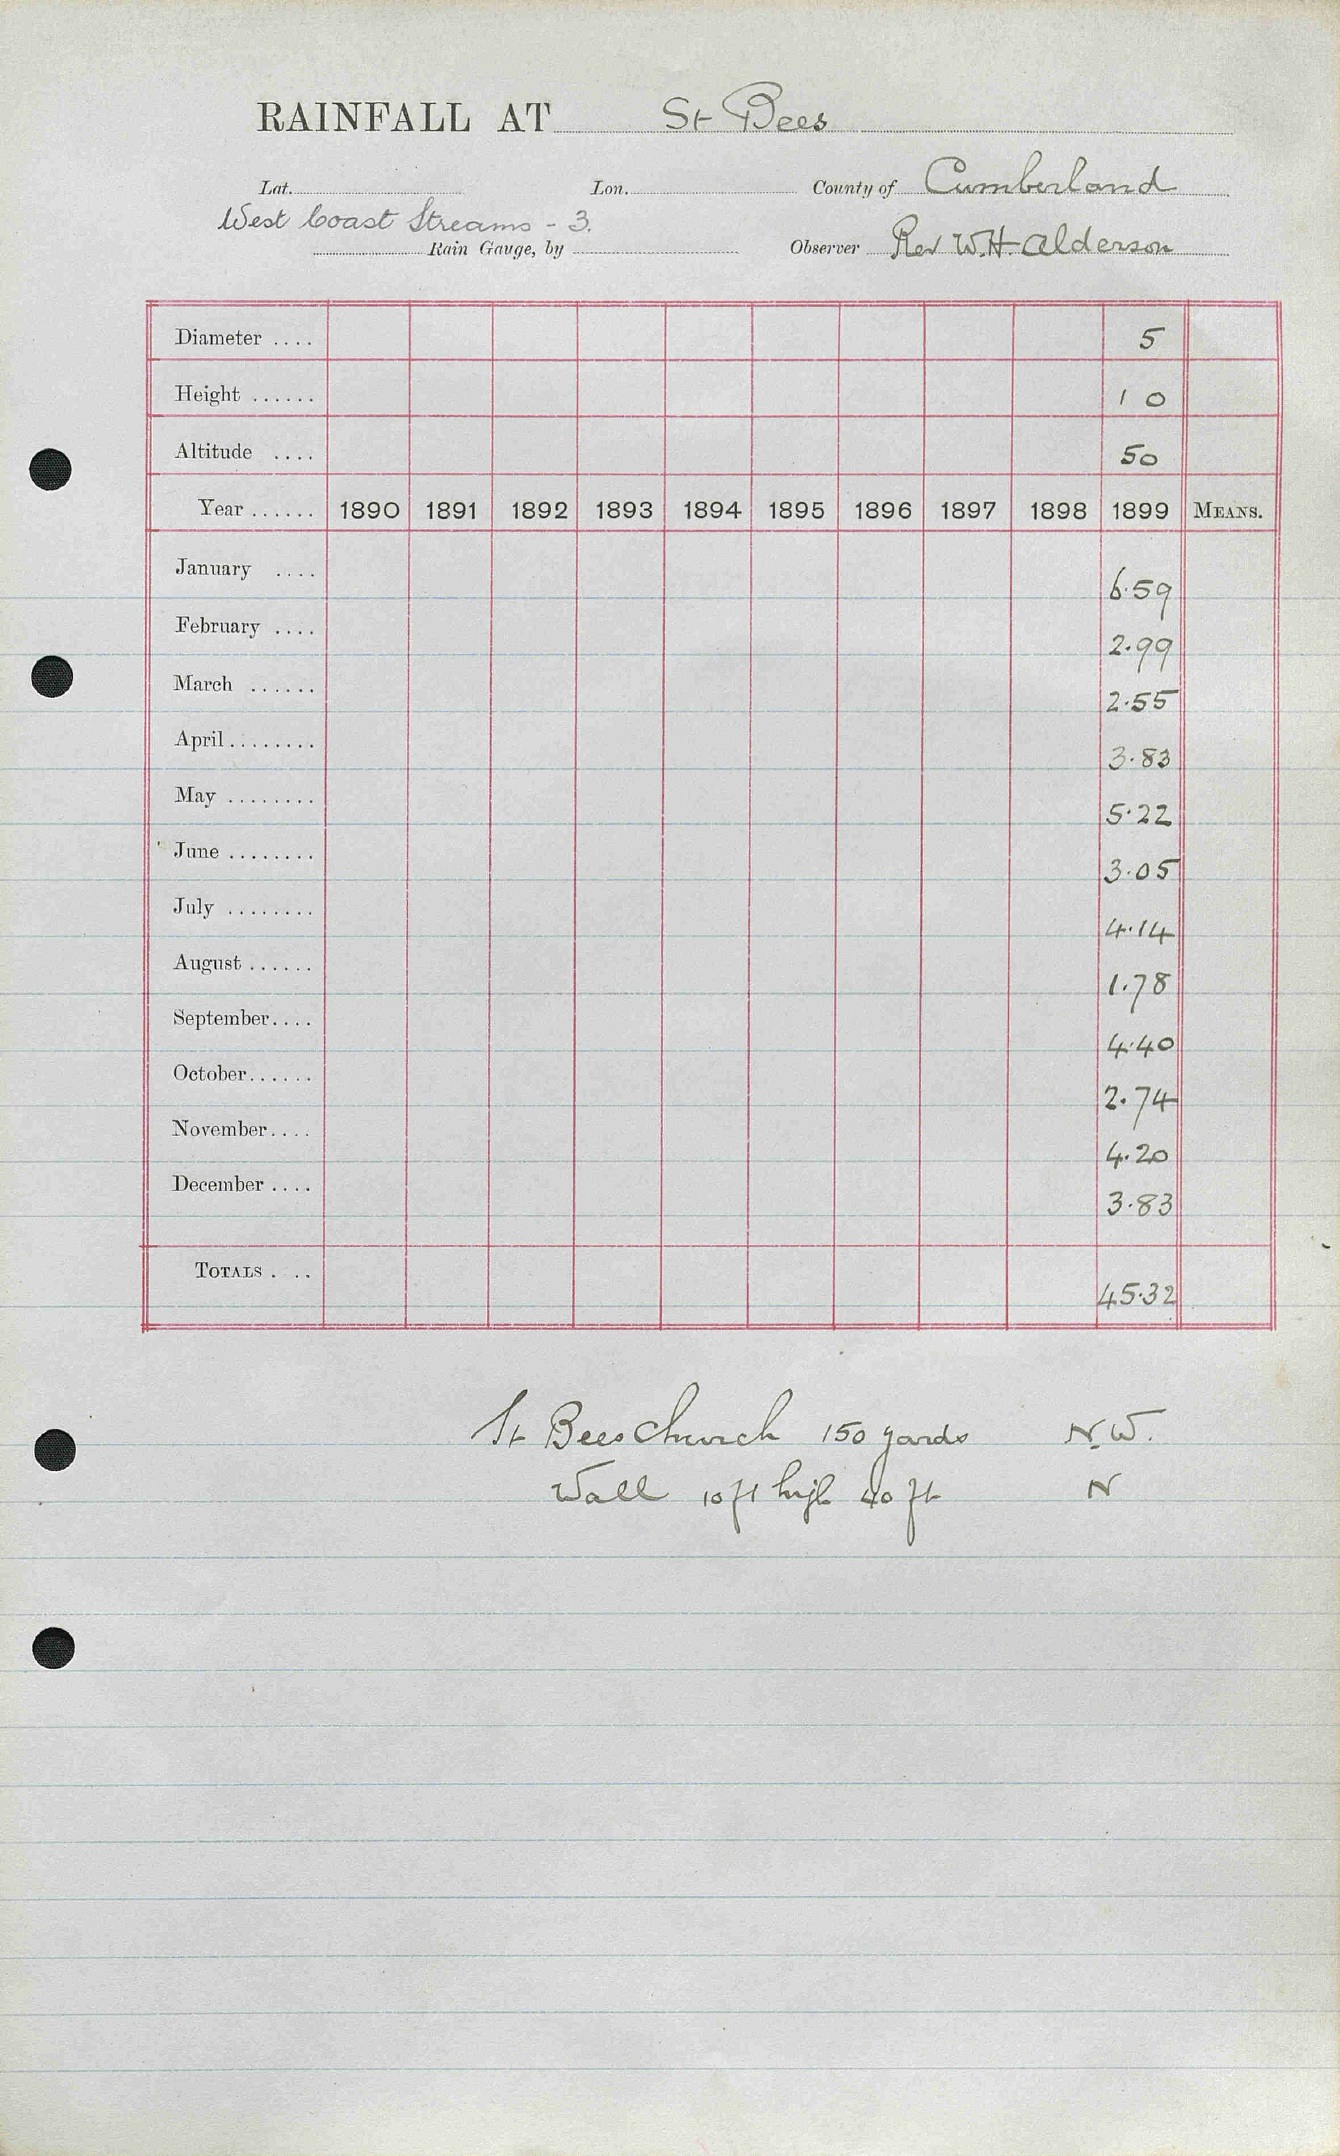 RAINFALL AT St Bees
Lat. Lon. County of Cumberland
West Coast Streams - 3.
Rain Gauge, by Observer Rev W.H. Alderson
Diameter .... 5
Height ...... 1 0
Altitude .... 50
Year ...... 1890 1891 1892 1893 1894 1895 1896 1897 1898 1899 MEANS.
January .... 6.59
February .... 2.99
March ...... 2.55
April ........ 3.83
May ........ 5.22
June ........ 3.05
July ........ 4.14
August ...... 1.78
September.... 4.40
October...... 2.74
November.... 4.20
December .... 3.83
TOTALS . .. 45.32
St Bees Church 150 yards N.W.
Wall 10 ft high 40 ft N